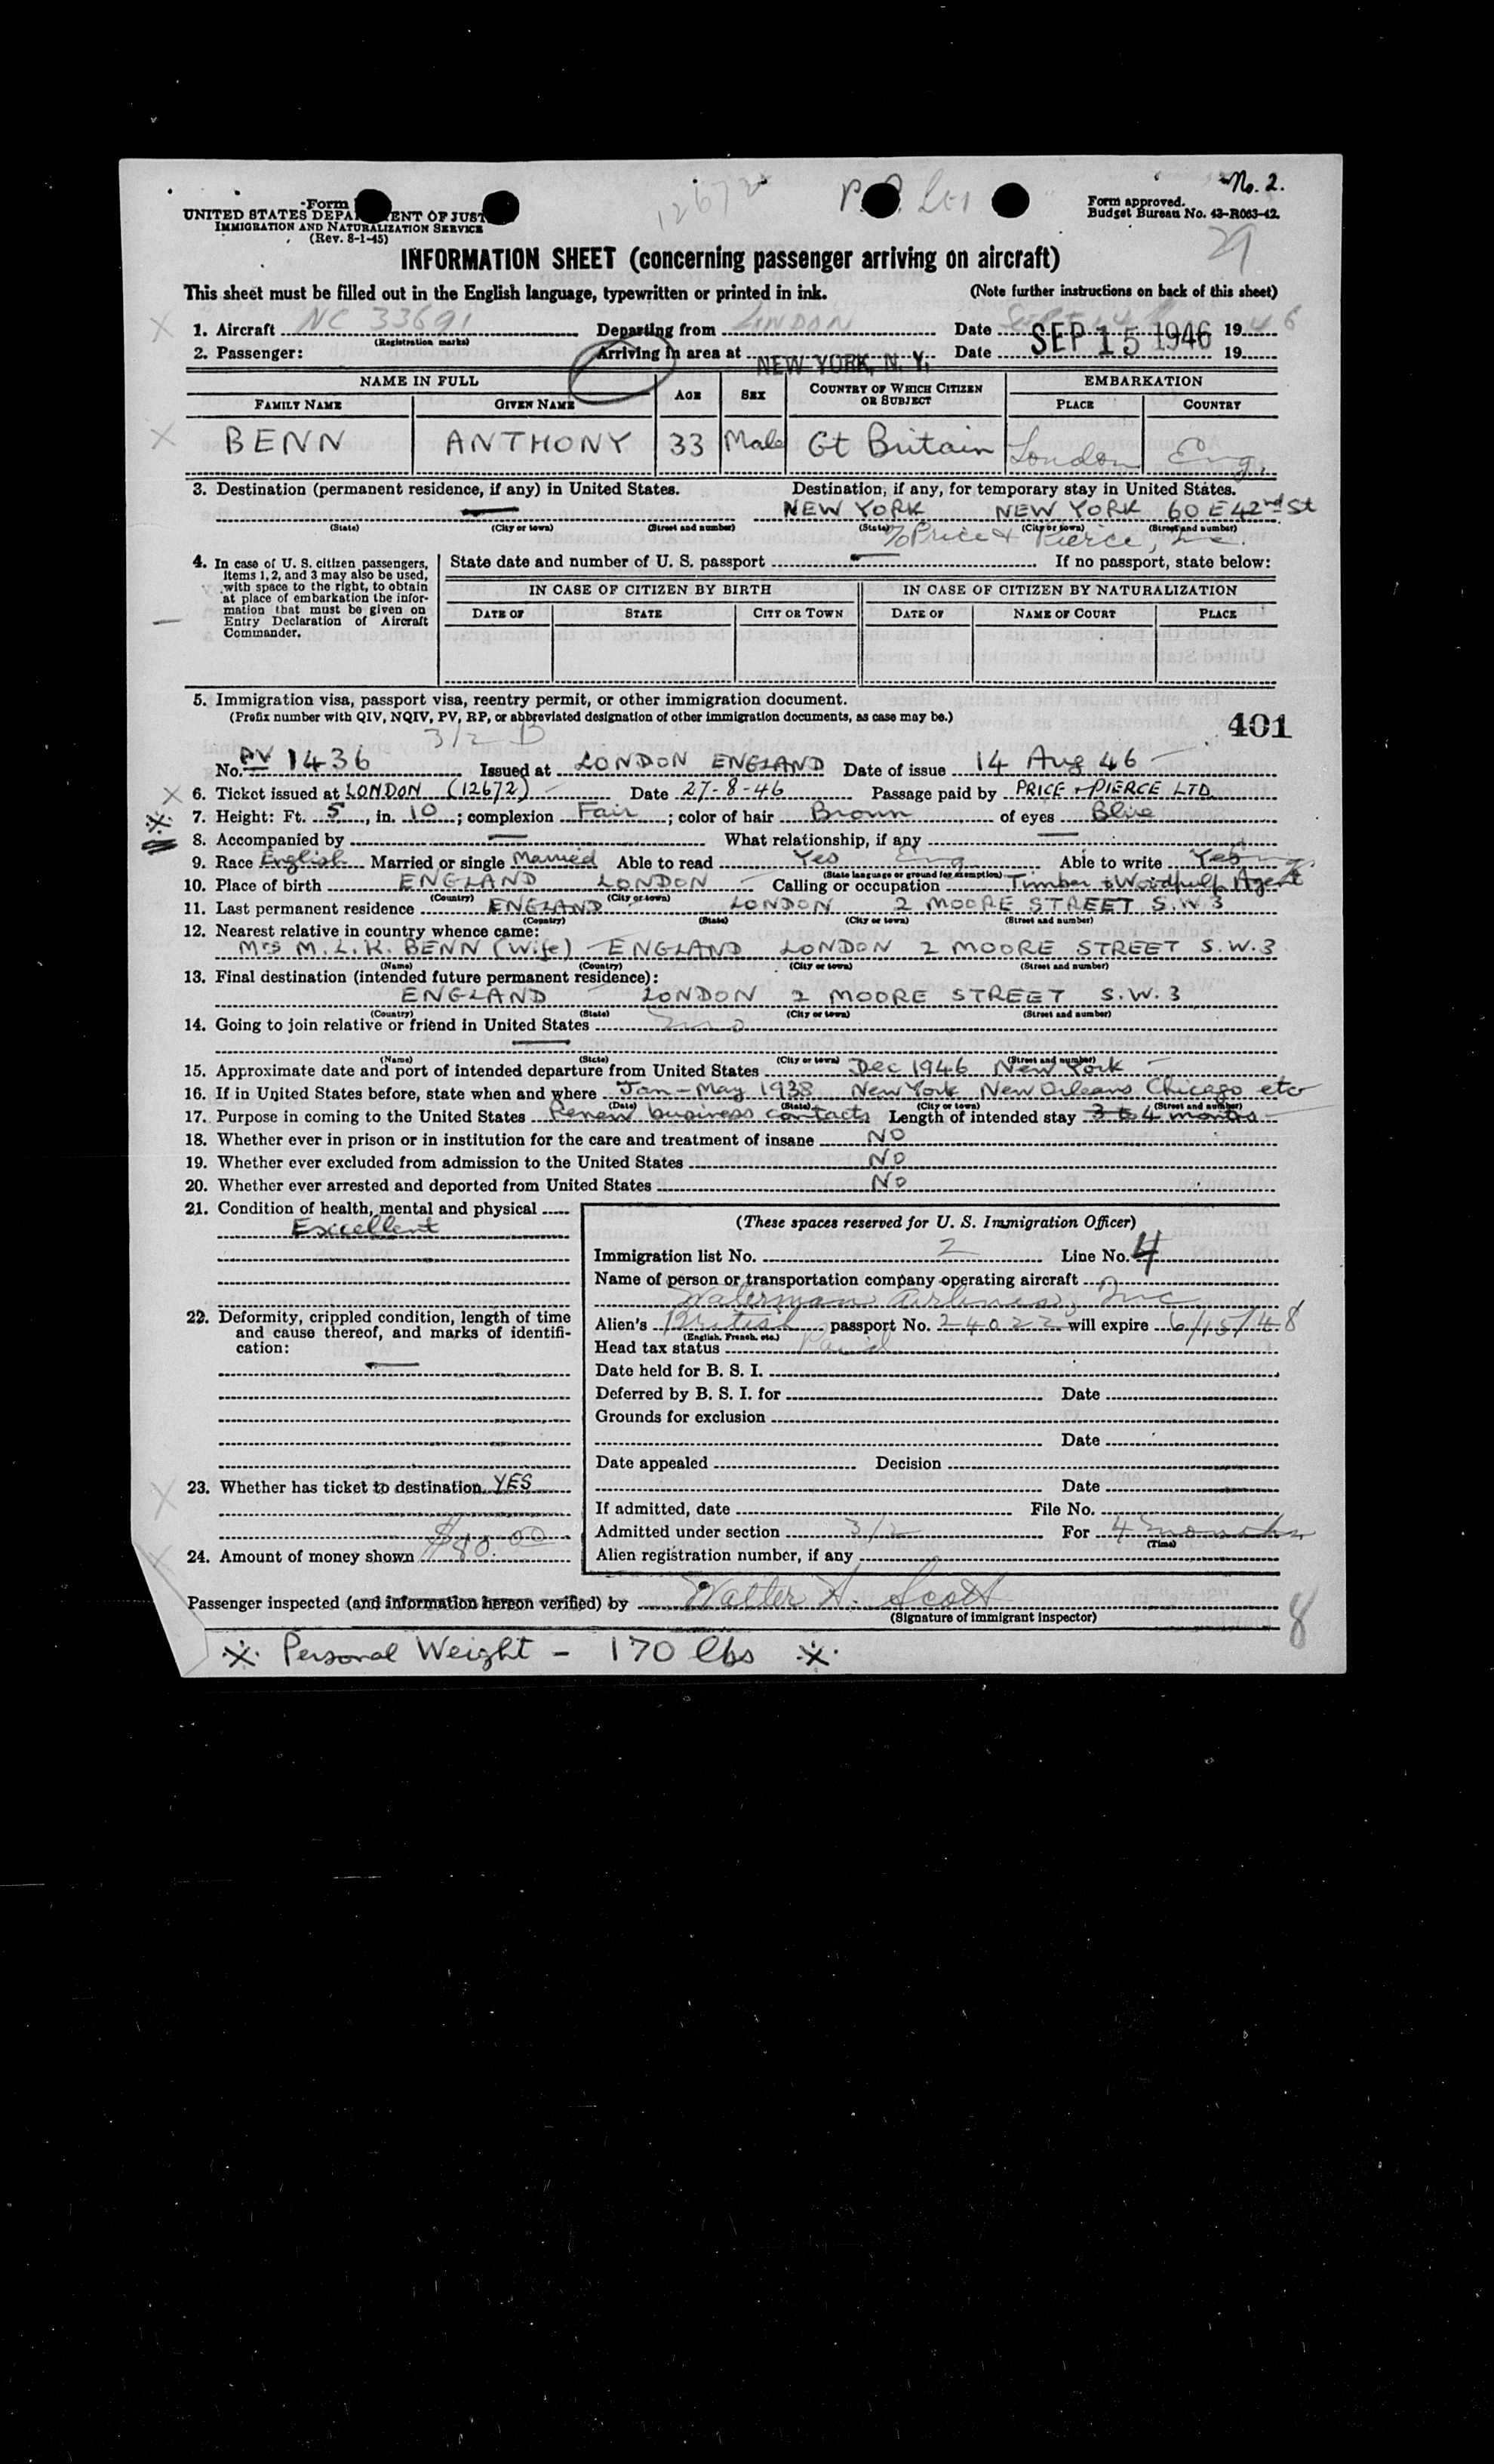 No. 2.
12672
Form
UNITED STATES DEPA ENT OF JUST
IMMIGRATION AND NATURALIZATION SERVICE
(Rev. 8-1-45)
Form approved.
Budget Bureau No. 43-R063-42.
29
INFORMATION SHEET (concerning passenger arriving on aircraft)
This sheet must be filled out in the English language, typewritten or printed in ink. (Note further instructions on back of this sheet)
1. Aircraft NC 33691 Departing from LONDON Date SEPT 14 1946
(Registration marks)
2. Passenger: Arriving in area at NEW YORK, N. Y. Date SEP 15 1946 19
NAME IN FULL AGE SEX COUNTRY OF WHICH CITIZEN OR SUBJECT EMBARKATION
FAMILY NAME GIVEN NAME PLACE COUNTRY
BENN ANTHONY 33 Male Gt Britain London Eng.
3. Destination (permanent residence, if any) in United States. Destination, if any, for temporary stay in United States.
— NEW YORK NEW YORK 60 E 42nd St
(State) (City or town) (Street and number) (State) (City or town) (Street and number)
% Price & Pierce, Inc.
4. In case of U. S. citizen passengers, items 1, 2, and 3 may also be used, with space to the right, to obtain at place of embarkation the information that must be given on Entry Declaration of Aircraft Commander.
State date and number of U. S. passport — If no passport, state below:
IN CASE OF CITIZEN BY BIRTH IN CASE OF CITIZEN BY NATURALIZATION
DATE OF STATE CITY OR TOWN DATE OF NAME OF COURT PLACE
5. Immigration visa, passport visa, reentry permit, or other immigration document.
(Prefix number with QIV, NQIV, PV, RP, or abbreviated designation of other immigration documents, as case may be.)
401
3/2 B
No. PV 1436 Issued at LONDON ENGLAND Date of issue 14 Aug 46
6. Ticket issued at LONDON (12672) Date 27-8-46 Passage paid by PRICE & PIERCE LTD
7. Height: Ft. 5, in. 10; complexion Fair; color of hair Brown of eyes Blue
8. Accompanied by — What relationship, if any —
9. Race English Married or single Married Able to read Yes Eng Able to write Yes
(State language or ground for exemption)
10. Place of birth ENGLAND LONDON Calling or occupation Timber & Woodpulp Agent
(Country) (City or town)
11. Last permanent residence ENGLAND LONDON 2 MOORE STREET S.W.3
(Country) (State) (City or town) (Street and number)
12. Nearest relative in country whence came:
Mrs M. L. K. BENN (Wife) ENGLAND LONDON 2 MOORE STREET S.W.3
(Name) (Country) (City or town) (Street and number)
13. Final destination (intended future permanent residence):
ENGLAND LONDON 2 MOORE STREET S.W.3
(Country) (State) (City or town) (Street and number)
14. Going to join relative or friend in United States
—
(Name) (State) (City or town) (Street and number)
15. Approximate date and port of intended departure from United States Dec 1946 New York
16. If in United States before, state when and where Jan - May 1938 New York New Orleans Chicago etc
(Date) (State) (City or town) (Street and number)
17. Purpose in coming to the United States Renew business contacts Length of intended stay 3 to 4 months
18. Whether ever in prison or in institution for the care and treatment of insane NO
19. Whether ever excluded from admission to the United States NO
20. Whether ever arrested and deported from United States NO
21. Condition of health, mental and physical
Excellent
22. Deformity, crippled condition, length of time and cause thereof, and marks of identification:
—
23. Whether has ticket to destination YES
24. Amount of money shown $80.00
(These spaces reserved for U. S. Immigration Officer)
Immigration list No. 2 Line No. 4
Name of person or transportation company operating aircraft
Waterman Airlines, Inc
Alien's British passport No. 24022 will expire 6/15/48
(English, French, etc.)
Head tax status Paid
Date held for B. S. I.
Deferred by B. S. I. for Date
Grounds for exclusion
Date
Date appealed Decision
Date
If admitted, date File No.
Admitted under section 3/2 For 4 months
(Time)
Alien registration number, if any
Passenger inspected (and information hereon verified) by Walter A. Scott
(Signature of immigrant inspector)
8
Personal Weight - 170 lbs